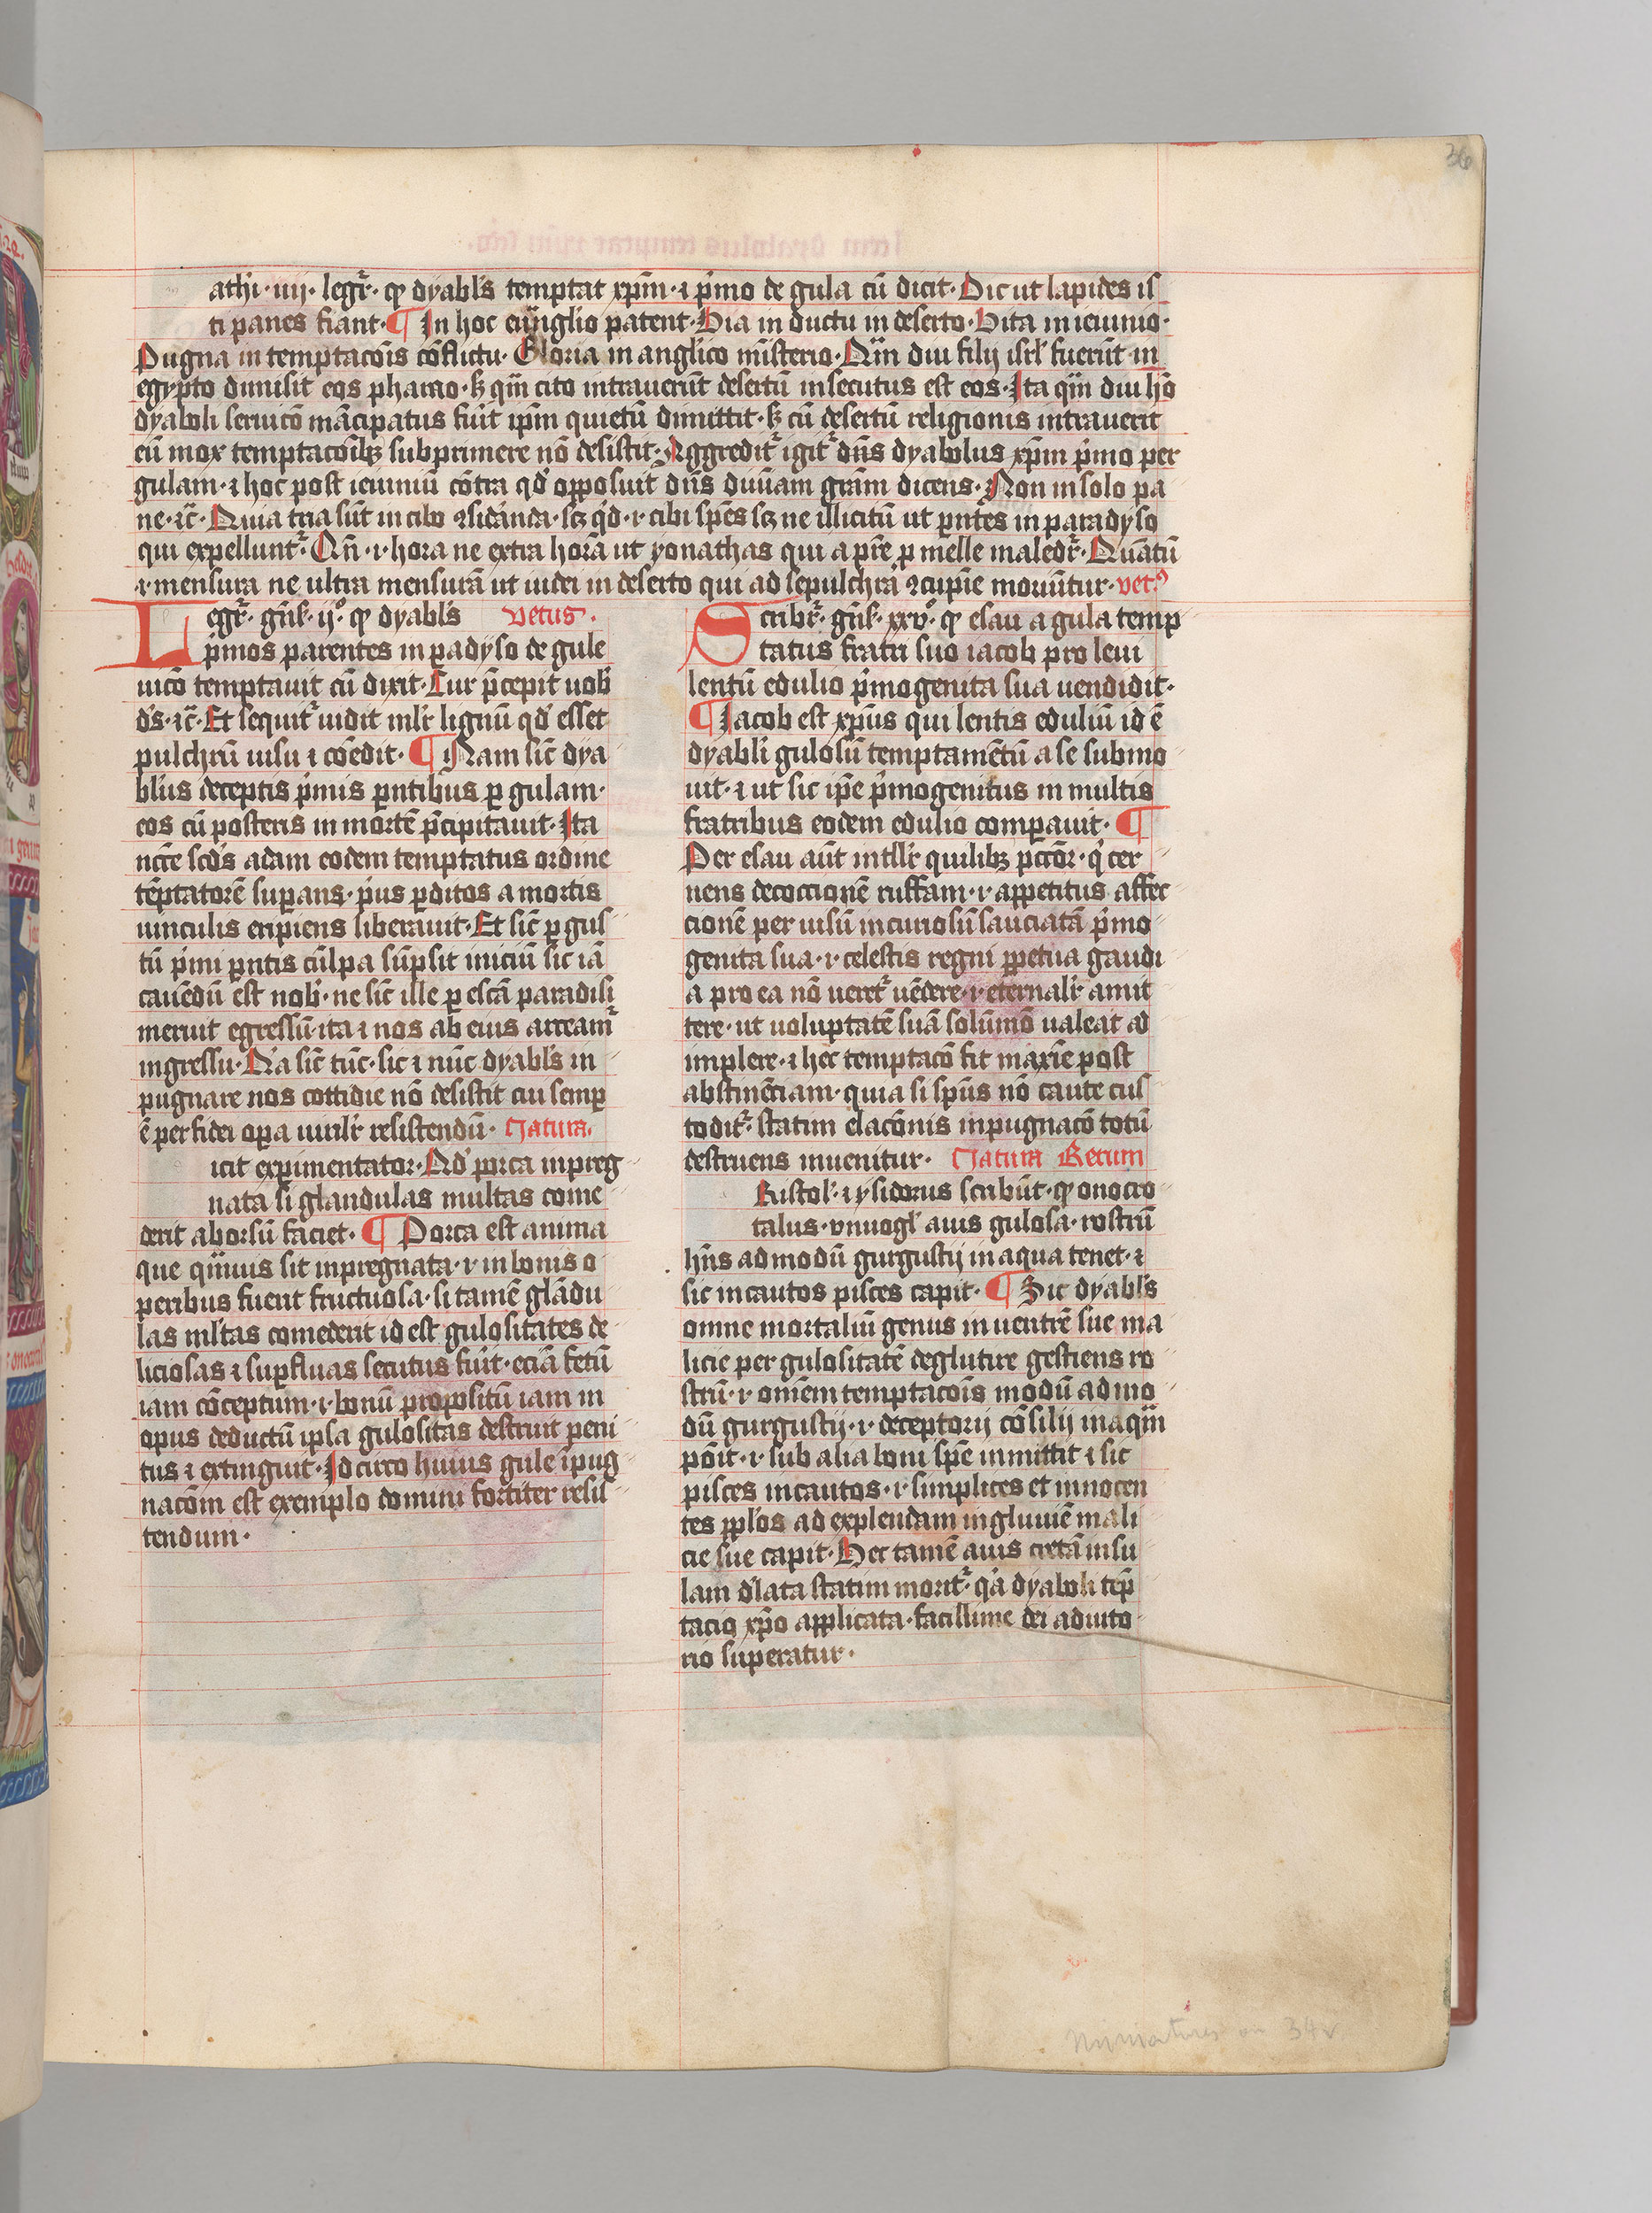 36
athi · iiij · legr̄ · ꝙ dyabl's temptat xp̄m · ⁊ p̍mo de gula cū dicit · Dic ut lapides is
ti panes fiant · ¶ In hoc euu̅glio patent · Via in ductu in deserto · Vita in ieiunio ·
Pugna in temptaco̅is co̅flictu · Gloria in anglico mi̅sterio · Q̈m diu filij isrl' fuerūt in
egypto dimisit eos pharao · sꝫ qm̈ cito intrauerūt desertū insecutus est eos · Ita qm̈ diu ho̅
dyaboli seruico̅ ma̅cipatus fu̍it ip̄m quietū dimittit · sꝫ cū desertū religionis intrauerit
eū mox temptaco̅ibꝫ subprimere nō desistit · Aggredit̄ igit̄ dn̄s dyabolus xp̄m p̍mo per
gulam · ⁊ hoc post ieiuniū cōtra qd̍ opposuit dn̄s diuinam grām dicens · Non in solo pa
ne · ⁊c̄ · Quia tria sūt in cibo ꝯsidāda · scꝫ q̍d · i · cibi spe̅s scꝫ ne illicitū ut pn̄tes in paradyso
qui expellunt̄ · Qn̄ · i · hora ne extra horā ut yonathas qui a pr̄e ꝑ melle maledr̄ · Quātū
· i · mensura ne ultra mensurā ut iudei in deserto qui ad sepulchrā ꝯcupie̅ mouūtur · vetꝰ
Legr̄ · gn̄s · ij° · ꝙ dyabl's vetus ·
p̍mos parentes in ꝑadyso de gule
uico̅ temptauit cū dixit · Cur p̄cepit uob̍
d̍s · ⁊c̄ · Et sequit̄ uidit ml̍r lignū qd̍ esset
pulchrū uisu ⁊ co̅edit · ¶ Nam sic̄ dya
bl'us deceptis p̍mis ꝑntibus ꝑ gulam ·
eos cū posteris in mortē p̄cipitauit · Ita
scd̍s adam eodem temptatus ordine
te̅ptatorē suꝑans · p̍us ꝑditos a mortis
uinculis eripiens liberauit · Et sic̄ ꝑ gus
tū p̍mi ꝑntis cūlpa sūpsit iniciū sic iā
cauēdū est nob̍ · ne sic̄ ille ꝑ escā paradisi
meruit egressū · ita ⁊ nos ab eius arceam̄
ingressu · Na̍ sic̄ tūc · sic ⁊ nūc dyabl's in
pugnare nos cottidie nō desistit cui semꝑ
ē per fidei oꝑa uiril̍r resistendū · Natura ·
icit exꝑimentator · Qd̍ porca inpreg
nata si glandulas multas come
derit aborsū faciet · ¶ Porca est anima
que qm̈uis sit inpregnata · i · in bonis o
peribus fuerit fructuosa · si tamē glādu
las ml̍tas comederit id est gulositates de
liciosas ⁊ suꝑfluas secutus fu̍it · eciā fetū
iam cōceptum · i · bonū propositū iam in
opus deductū ipsa gulositas destruit peni
tus ⁊ extinguit · Idcirco huius gule īpug
naco̅m est exemplo domini fortiter resis
tendum ·
Scribr̄ · gn̄s · xxv° · ꝙ esau a gula temp
tatus fratri suo iacob pro leui
lentū edulio p̍mogenita sua uendidit ·
¶ Jacob est xp̄us qui lentis eduliū id ē
dyabli̍ gulosū temptamētū a se submo
uit · ⁊ ut sic ip̄e p̍mogenitus in multis
fratribus eodem edulio comꝑauit · ¶
Per esau aūt intll̍r quilibꝫ pcc̄or · q̍ cer
nens decoccionē ruffam · i · appetitus affec
cionē per uisū incuriosū sauciatā p̍mo
genita sua · i · celestis regni ꝑpetua gaudi
a pro ea nō ueret̄ uēdere · i · eternal̍r amit
tere · ut uoluptatē suā solūmō ualeat ad
implere · ⁊ hec temptaco̅ fit maxie̅ post
abstinēciam · quia si sp̄us nō caute cus
todit̄ · statim elaco̅nis inpugnaco̅ totū
destruens inuenitur · Natura Rerum
Aristol̍ · ⁊ ysidorus scribūt · ꝙ onocro
talus · vnuogl̍ auis gulosa · rostrū
hn̄s ad modū gurgustij in aqua tenet · ⁊
sic incautos pisces capit · ¶ Sic dyabl's
omne mortaliū genus in uentrē sue ma
licie per gulositatē deglutire gestiens ro
strū · i · omēm temptaco̅is modū ad mo
dū gurgustij · i · deceptorij cōsilij in aqm̈
pōit · i · sub alia boni spe̅ inmittit ⁊ sic
pisces incautos · i · simplices et innocen
tes ppl̍os ad explendam ingluuiē mali
cie sue capit · Hec tamē auis cretā insu
lam d̍lata statim morit̄ · q̍a dyaboli tēp
tacio xp̄o applicata · facillime dei adiuto
rio superatur ·
Miniatures on 34v